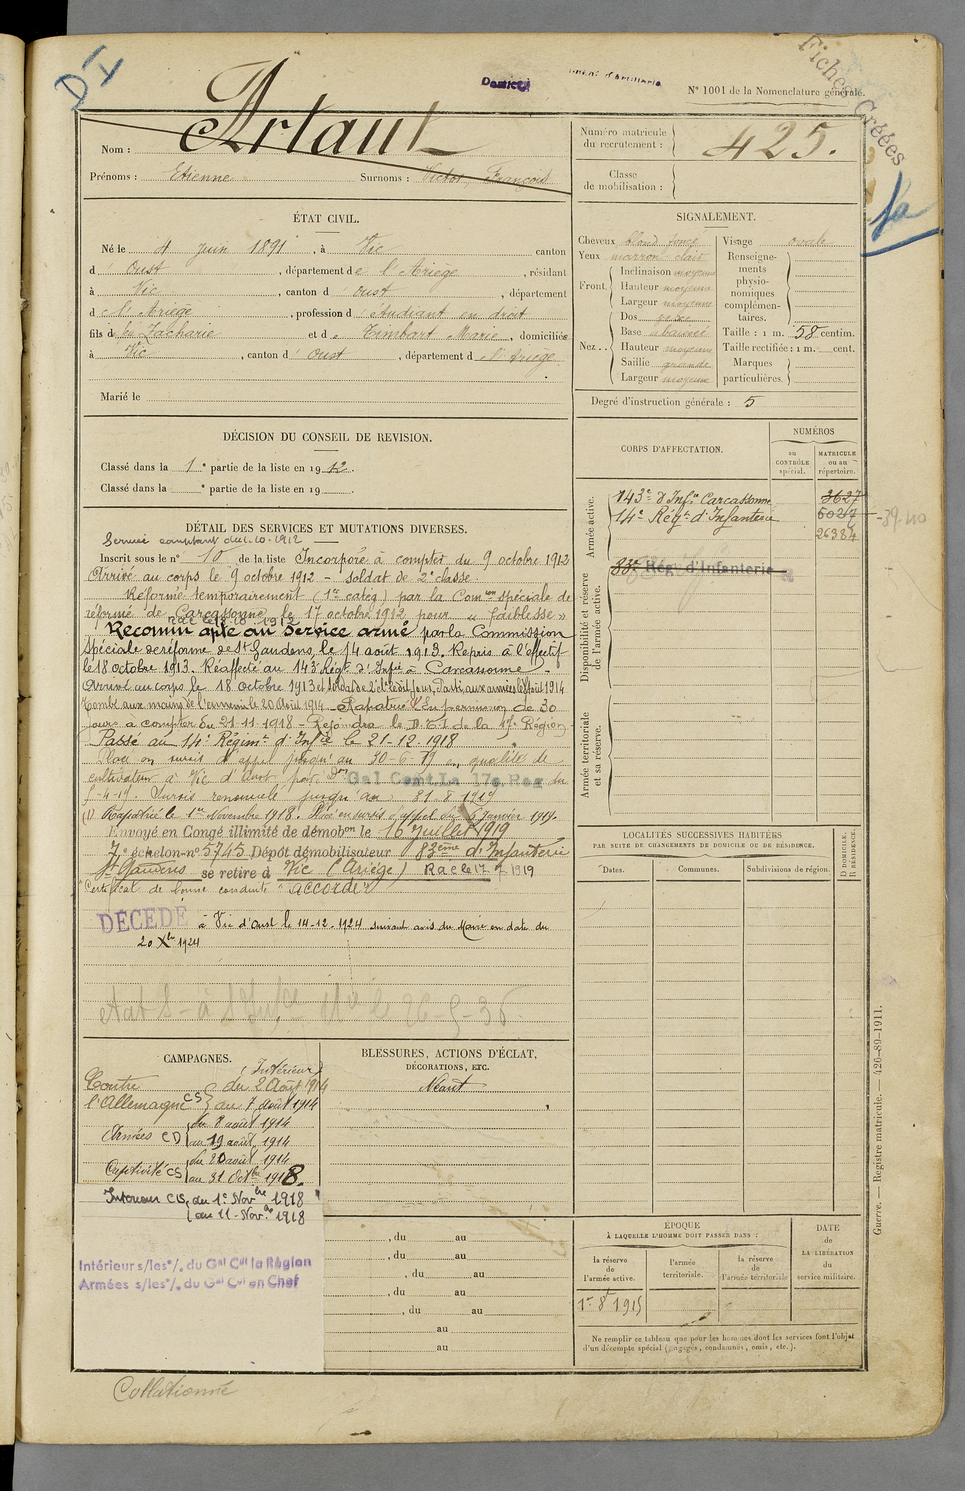 DI
Fiches Créées
N° 1001 de la Nomenclature générale.
Nom : Artaut
Prénoms : Etienne Surnoms : Victor, François
Numéro matricule du recrutement : 425.
Classe de mobilisation :
1a
ÉTAT CIVIL.
Né le 4 juin 1891, à Vic canton
d'Oust, département de l'Ariège, résidant
à Vic, canton d'Oust, département
de l'Ariège, profession d'étudiant en droit
fils de feu Zacharie et de Timbart Marie, domiciliés
à Vic, canton d'Oust, département de l'Ariège
Marié le
SIGNALEMENT.
Cheveux blond foncé
Yeux marron clair
Front. Inclinaison moyenne
Hauteur moyenne
Largeur moyenne
Nez.. Dos
Base abaissée
Hauteur moyenne
Saillie grande
Largeur moyenne
Visage ovale
Renseignements physionomiques complémentaires.
Taille : 1 m. 58 centim.
Taille rectifiée : 1 m. cent.
Marques particulières.
Degré d'instruction générale : 5
DÉCISION DU CONSEIL DE REVISION.
Classé dans la 1e partie de la liste en 1912.
Classé dans la e partie de la liste en 19
CORPS D'AFFECTATION.
NUMÉROS
au CONTRÔLE spécial.
MATRICULE ou au répertoire.
Armée active.
143e d'Infie Carcassonne 3627
14e Régt d'Infanterie 5027
26384
39-40
Disponibilité et réserve de l'armée active.
83e Rég. d'Infanterie
Armée territoriale et sa réserve.
DÉTAIL DES SERVICES ET MUTATIONS DIVERSES.
Service comptant du 1-10-1912
Inscrit sous le n° 10 de la liste Incorporé à compter du 9 octobre 1912
Arrivé au corps le 9 octobre 1912 - soldat de 2e classe.
Réformé temporairement (1re catég) par la Comon spéciale de
réforme de Carcassonne le 17 octobre 1912 pour « faiblesse »
Rac le 18-10-1912
Reconnu apte au Service armé par la Commission
Spéciale de réforme de St Gaudens, le 14 août 1913. Repris à l'effectif
le 18 octobre 1913. Réaffecté au 143e Régt d'Infie à Carcassonne.
Arrivé au corps le 18 octobre 1913 et soldat de 2e cl. le dit jour, Parti aux armées le 8 août 1914
Tombé aux mains de l'ennemi le 20 Août 1914. Rapatrié (1) En permission de 30
jours à compter du 21-11-1918 - Rejoindra le D.T.I de la 17e Région
Passé au 14e Régimt d'Infie le 21-12-1918
Placé en sursis d'appel jusqu'au 30-6-19 en qualité de
cultivateur à Vic d'Oust par Don Gal Cent La 17e Reg du
5-4-19. Sursis renouvelé jusqu'au 31-8-1919
(1) Rapatrié le 1er Novembre 1918. Placé en sursis d'appel du 6 janvier 1919.
Envoyé en Congé illimité de démobon le 16 Juillet 1919
7e échelon-n° 5745 Dépôt démobilisateur 83ème d'Infanterie
St Gaudens se retire à Vic (Ariège) Rac le 17 7 1919
"Certificat de bonne conduite" "accordé"
DÉCÉDÉ à Vic d'Oust le 14-12-1924 suivant avis du Maire en date du
20 Xbre 1924
LOCALITÉS SUCCESSIVES HABITÉES
PAR SUITE DE CHANGEMENTS DE DOMICILE OU DE RÉSIDENCE.
Dates.
Communes.
Subdivisions de région.
D DOMICILE,
R RÉSIDENCE.
CAMPAGNES.
Contre l'Allemagne
Intérieur CS du 2 Août 1914
au 7 août 1914
Armées CD du 8 août 1914
au 19 août 1914
Captivité CS du 20 août 1914
au 31 Octbre 1918.
Intérieur CS, du 1er Novbre 1918
au 11-Novbre 1918
Intérieur s/les°/. du Gal Ct la Région
Armées s/les°/. du Gal Ct en Chef
BLESSURES, ACTIONS D'ÉCLAT,
DÉCORATIONS, ETC.
Néant
, du au
, du au
, du au
, du au
, du au
au
au
ÉPOQUE
À LAQUELLE L'HOMME DOIT PASSER DANS :
la réserve de l'armée active.
l'armée territoriale.
la réserve de l'armée territoriale
DATE de LA LIBÉRATION du service militaire.
1er 8bre 1915
Ne remplir ce tableau que pour les hommes dont les services font l'objet
d'un décompte spécial (engagés, condamnés, omis, etc.).
Guerre. — Registre matricule. — 426-89-1911.
Collationné